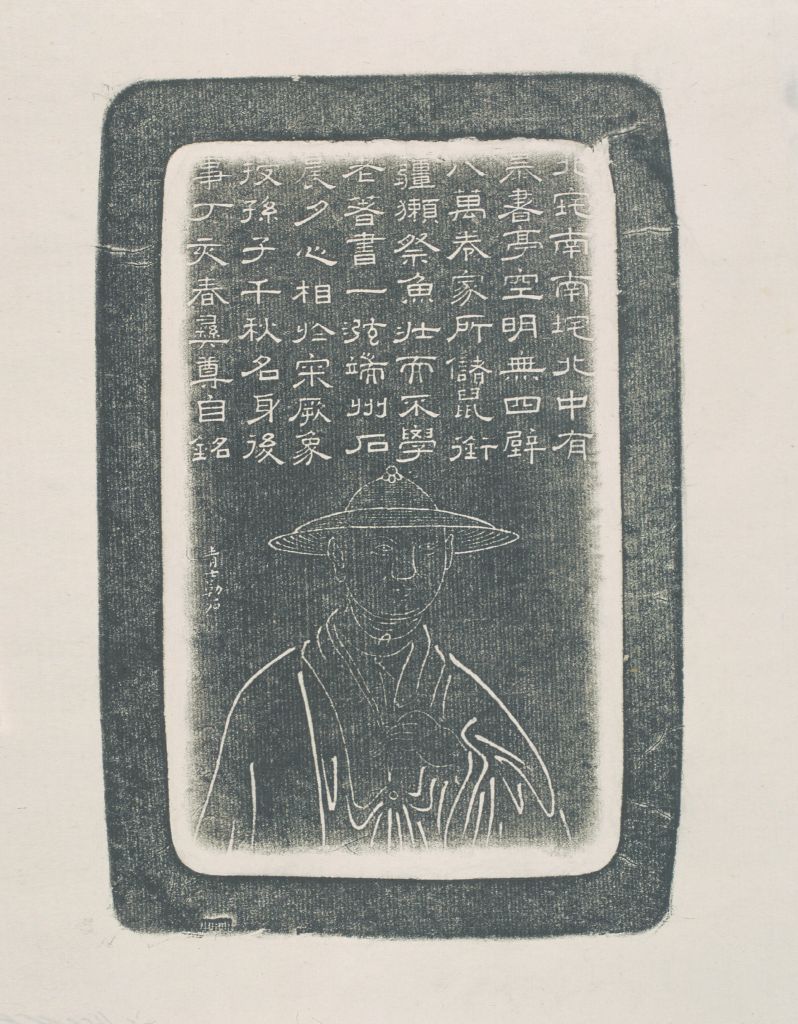 北垞南南垞北中有
㬥書亭空明無四壁
八萬卷家所儲鼠銜
薑獺祭魚壯而不學
老著書一泓端州石
晨夕心相於宷厥象
授孫子千秋名身後
事丁亥春彝尊自銘